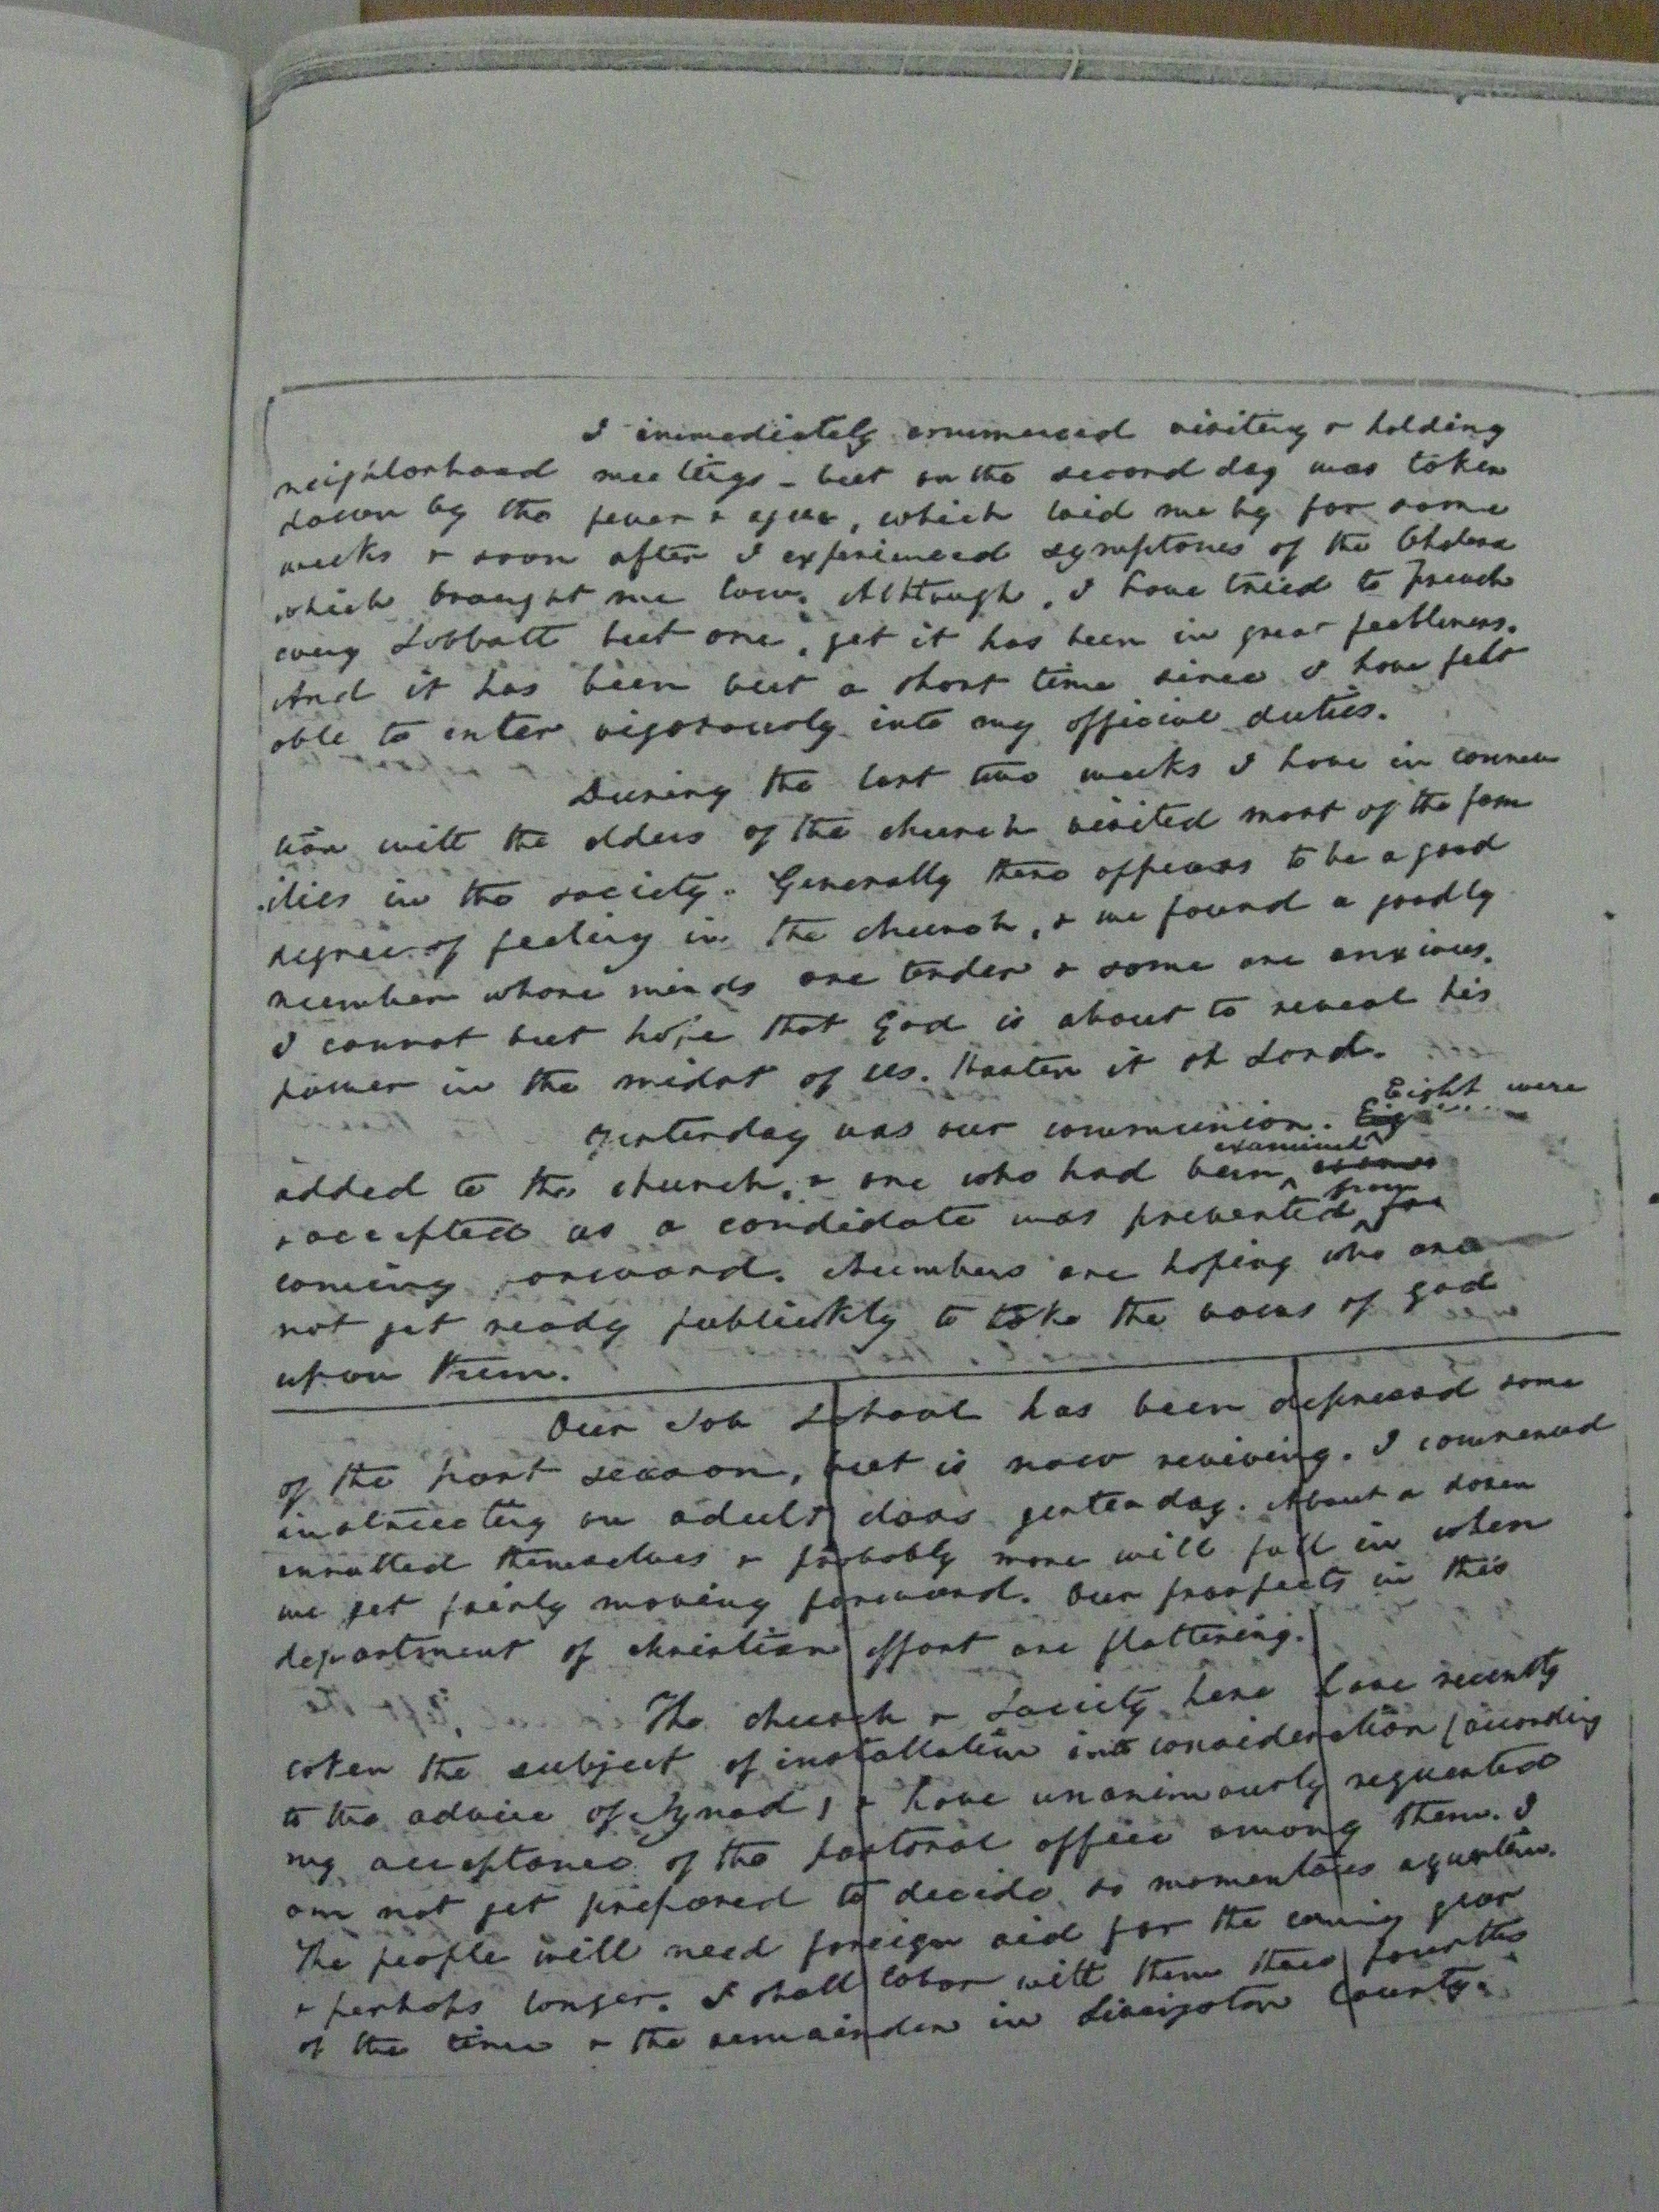 I immediately commenced visiting & holding
neighborhood meetings - but on the second day was taken
down by the fever & ague, which laid me by for some
weeks & soon after I experienced symptoms of the Cholera
which brought me low. Although, I have tried to preach
every Sabbath but one, yet it has been in great feebleness.
And it has been but a short time since I have felt
able to enter vigorously into my official duties.
During the last two weeks I have in connec
tion with the elders of the church visited most of the fam
ilies in the society. Generally there appears to be a good
degree of feeling in the church, & we found a goodly
number whose minds are tender & some are anxious.
I cannot but hope that God is about to reveal his
power in the midst of us. Hasten it oh Lord.
Eight were
Yesterday was our communion. Eig
examined
added to the church, & one who had been
from
& accepted as a candidate was prevented for
coming forward. Numbers are hoping who are
not yet ready publickly to take the vows of God
upon them.
Our Sab School has been depressed some
of the past season, but is now reviving. I commenced
instructing an adult class yesterday. About a dozen
enrolled themselves & probably more will fall in when
we get fairly moving forward. Our prospects in this
department of christian effort are flattering.
The church & Society here have recently
taken the subject of installation into consideration (according
to the advice of Synod) & have unanimously requested
my acceptance of the pastoral office among them. I
am not yet prepared to decide so momentous a question.
The people will need foreign aid for the coming year
& perhaps longer. I shall labor with them three fourths
of the time & the remainder in Livingston County.